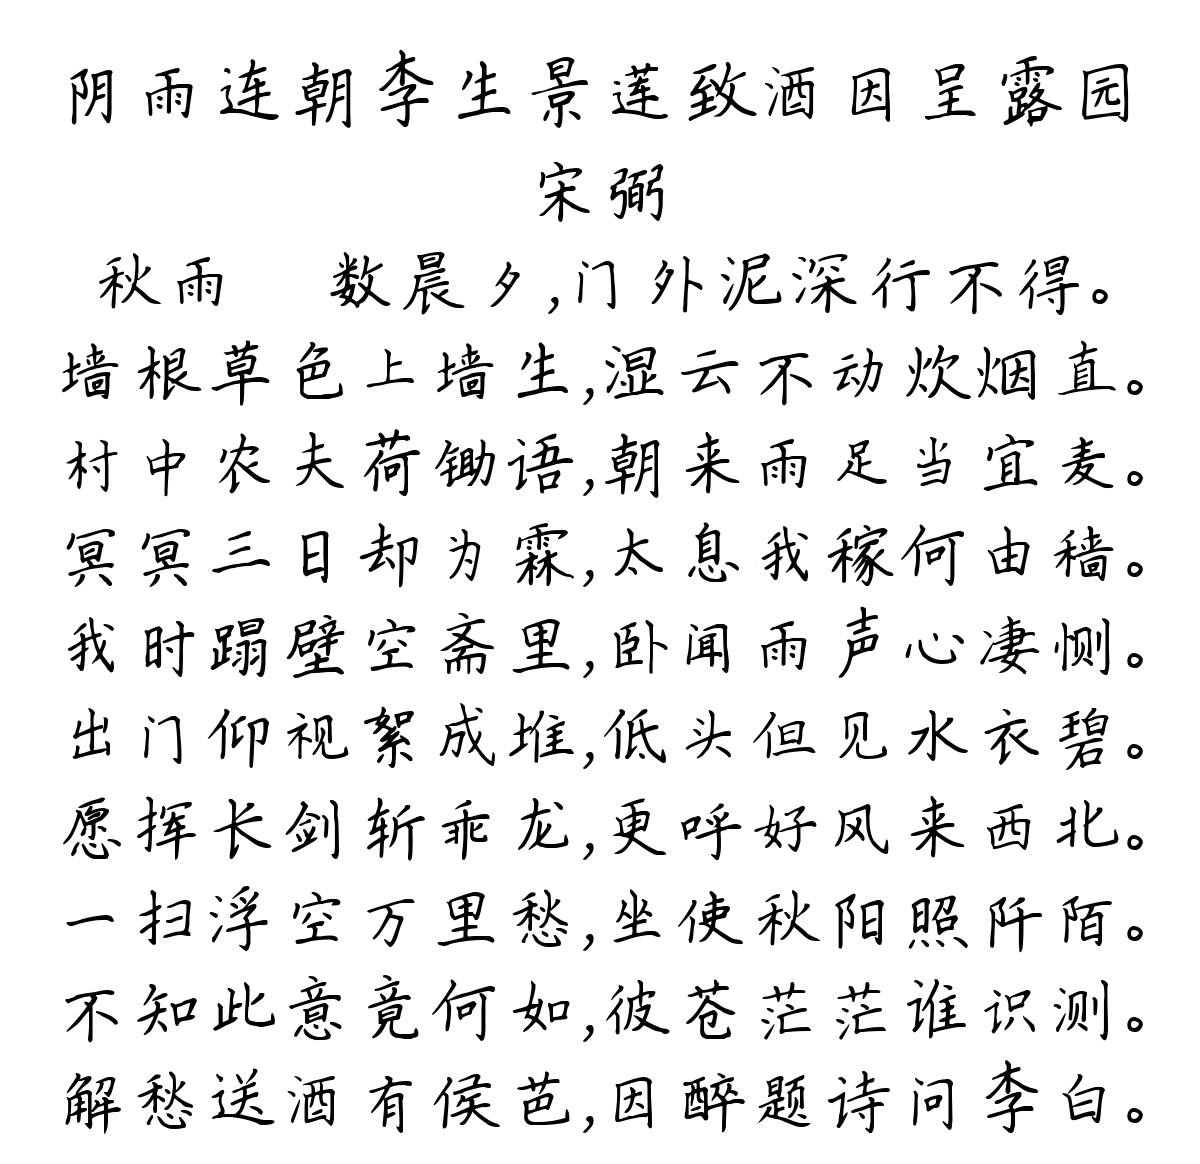 阴雨连朝李生景莲致酒因呈露园
宋弼
秋雨 数晨夕,门外泥深行不得。
墙根草色上墙生,湿云不动炊烟直。
村中农夫荷锄语,朝来雨足当宜麦。
冥冥三日却为霖,太息我稼何由穑。
我时蹋壁空斋里,卧闻雨声心凄恻。
出门仰视絮成堆,低头但见水衣碧。
愿挥长剑斩乖龙,更呼好风来西北。
一扫浮空万里愁,坐使秋阳照阡陌。
不知此意竟何如,彼苍茫茫谁识测。
解愁送酒有侯芭,因醉题诗问李白。